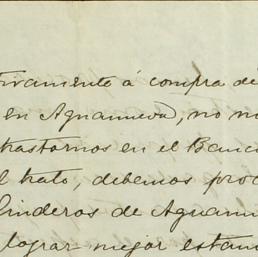 tivamente á compra de
en Aguanueva, no no
trastornos en el Banco
l trato, debemos proc
linderos de Aguanu
lograr mejor estam